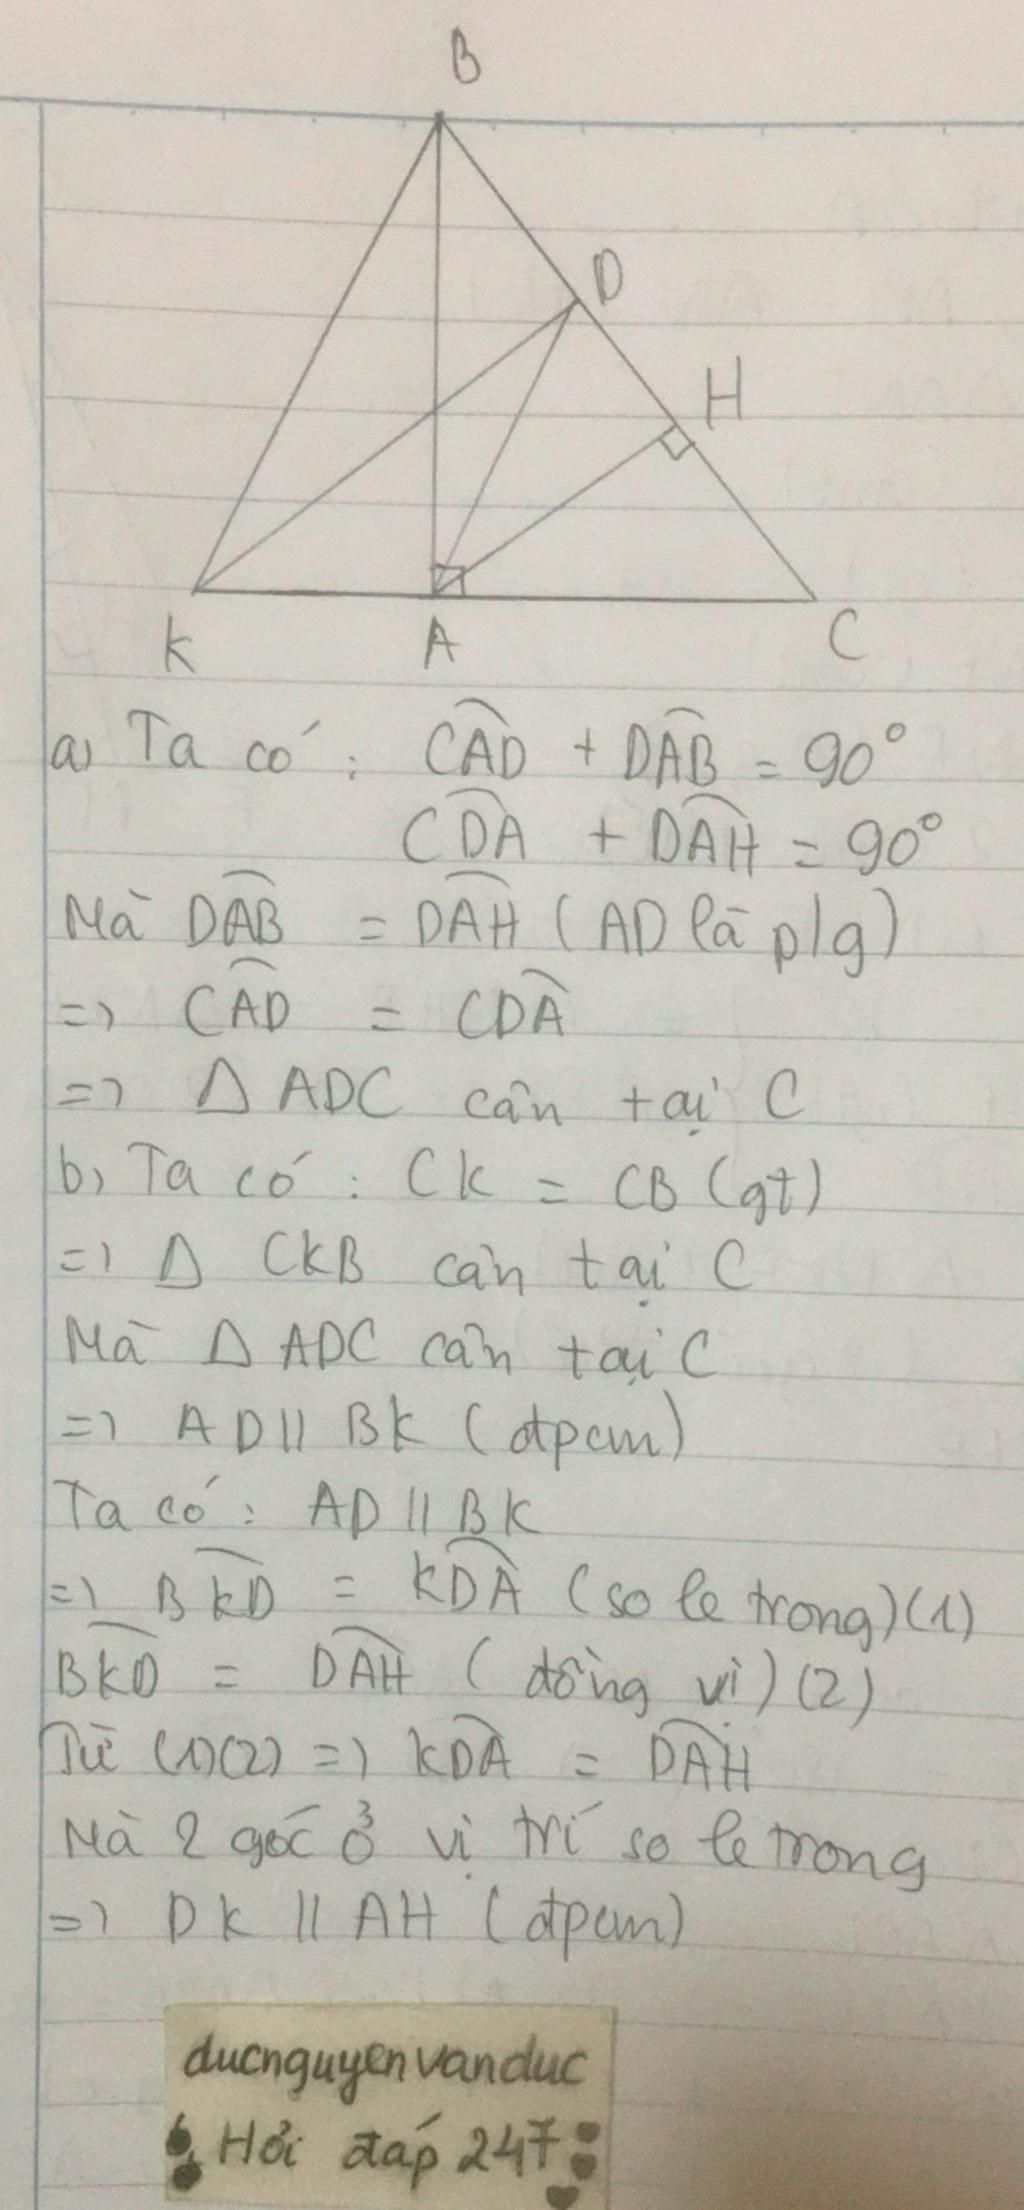 B
D
H
K
A
C
a) Ta có : CAD + DAB = 90°
CDA + DAH = 90°
Mà DAB = DAH (AD là p/g)
=> CAD = CDA
=> Δ ADC cân tại C
b) Ta có : CK = CB (gt)
=> Δ CKB cân tại C
Mà Δ ADC cân tại C
=> AD // BK (đpcm)
Ta có : AD // BK
=> BKD = KDA (so le trong) (1)
BKD = DAH (đồng vị) (2)
Từ (1)(2) => KDA = DAH
Mà 2 góc ở vị trí so le trong
=> DK // AH (đpcm)
ducnguyenvanduc
Hỏi đáp 247